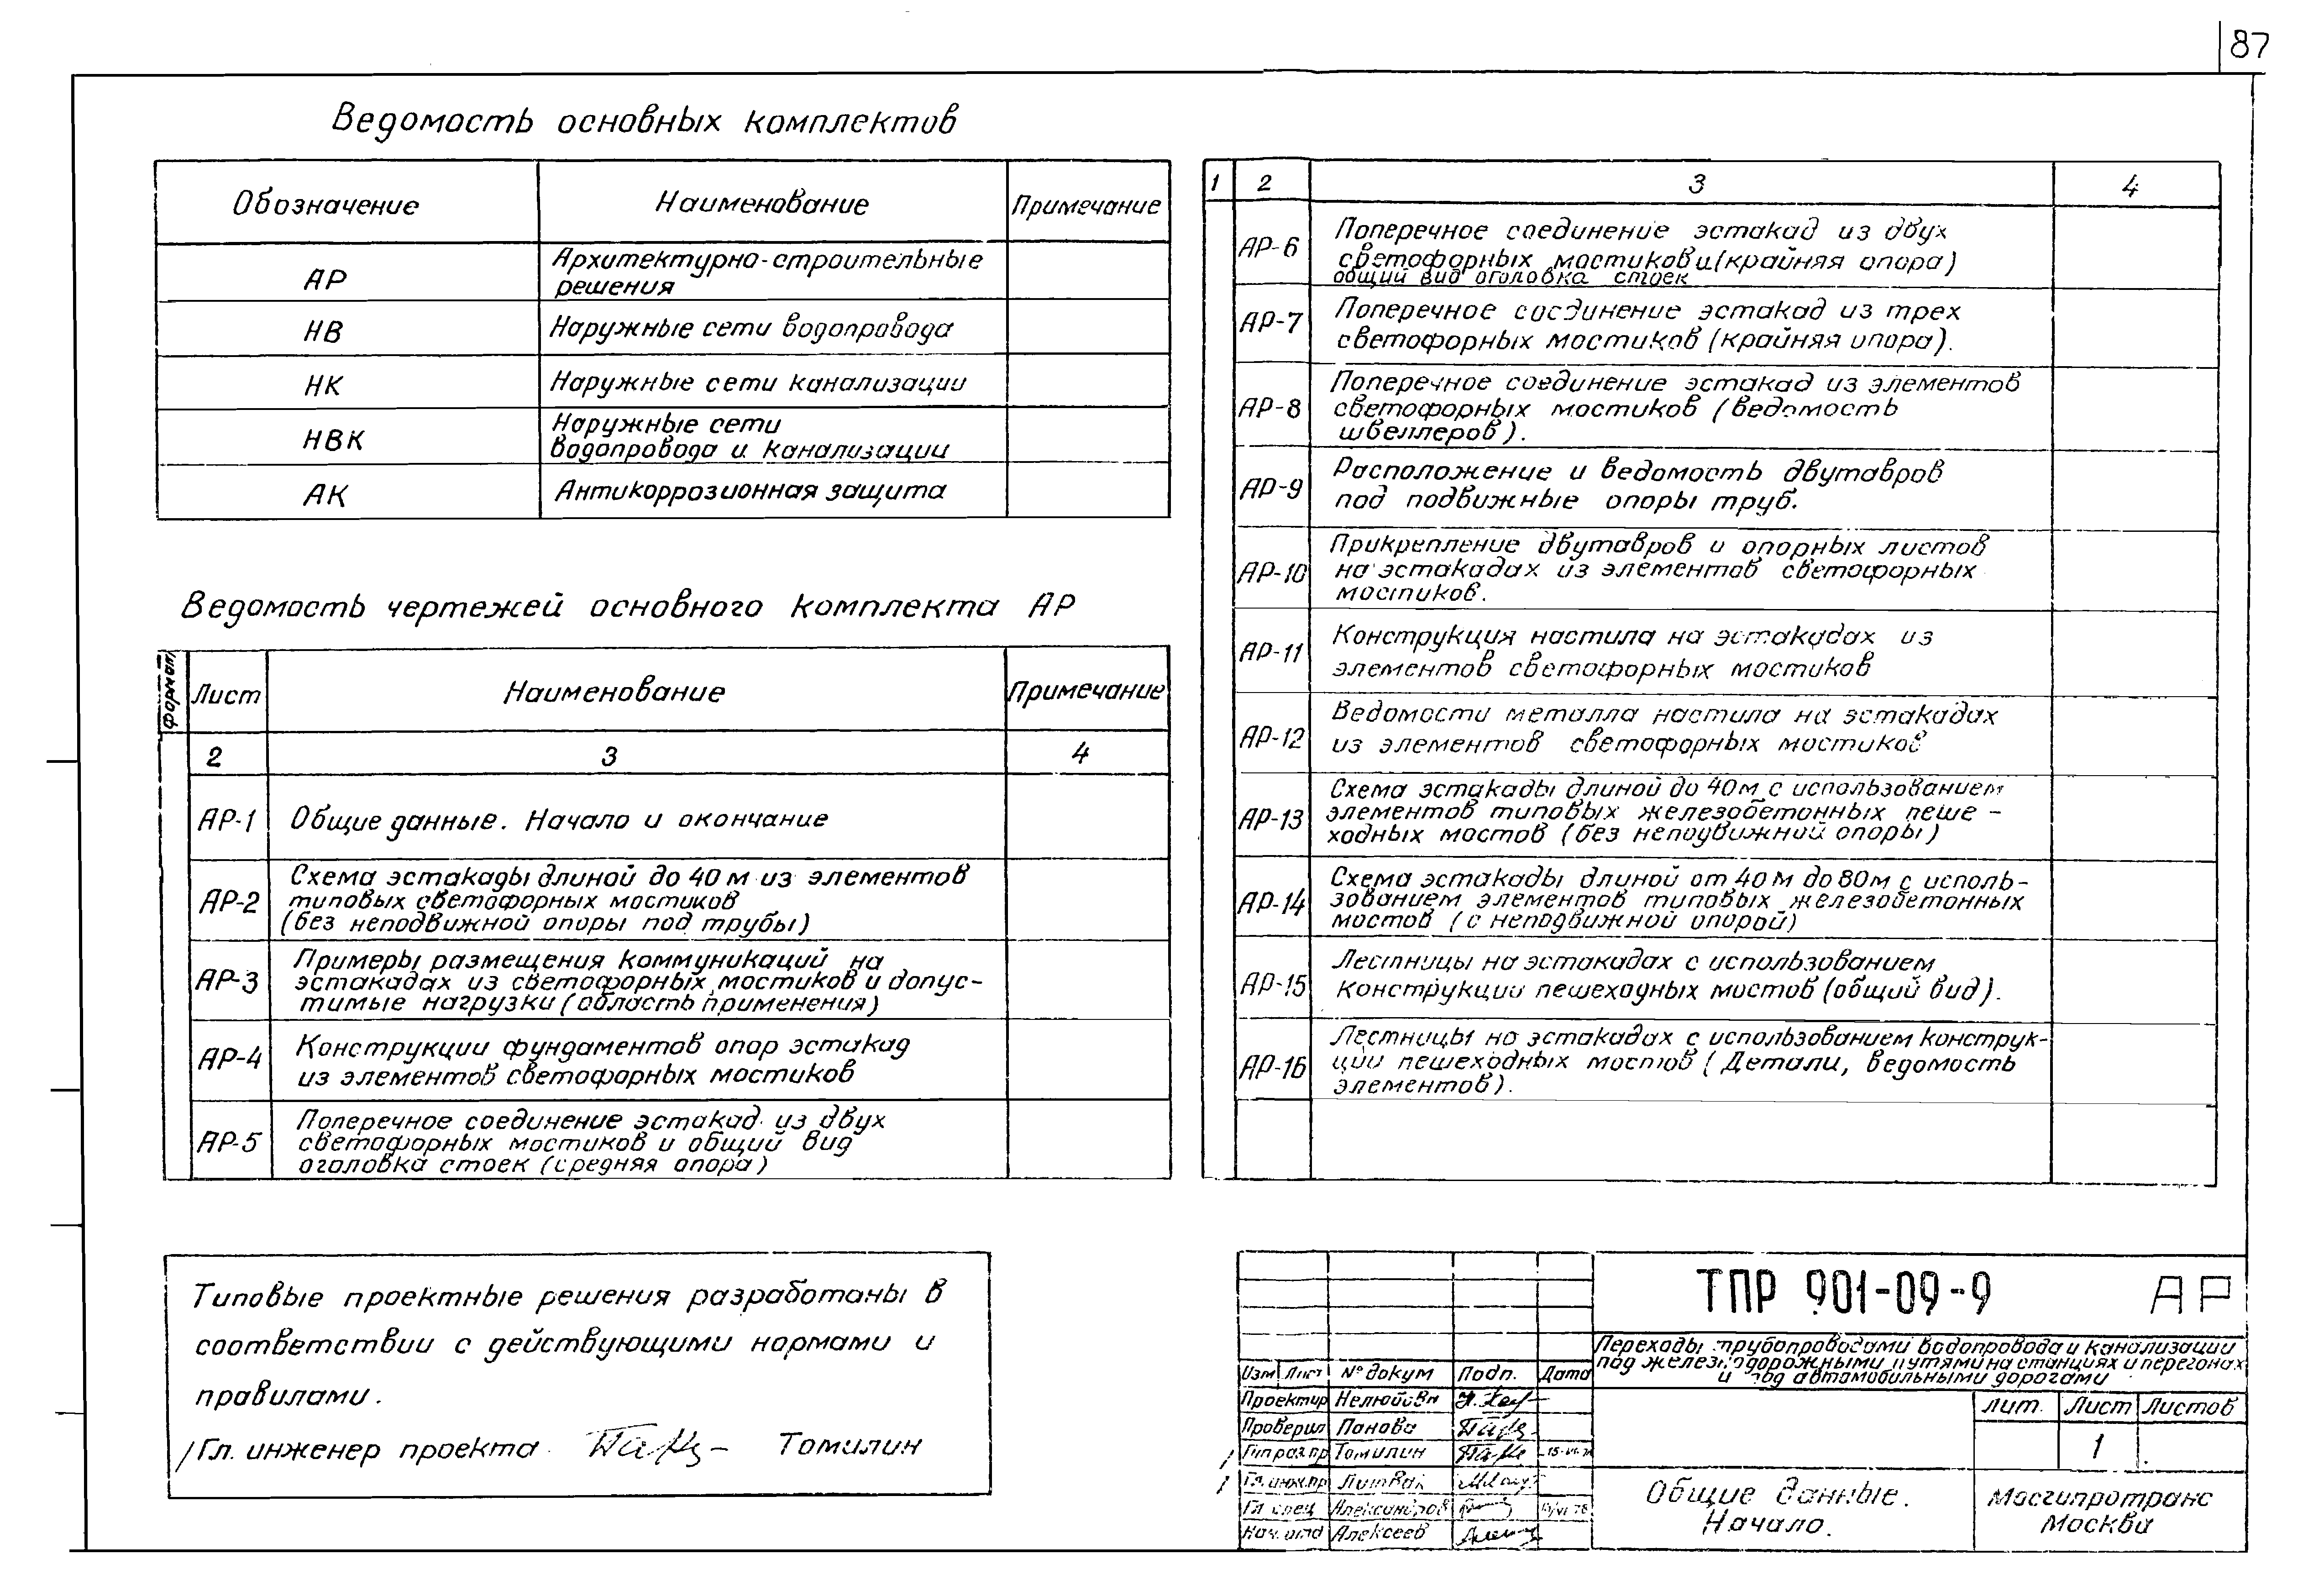 87
Ведомость основных комплектов
Обозначение
Наименование
Примечание
АР
Архитектурно-строительные
решения
НВ
Наружные сети водопровода
НК
Наружные сети канализации
НВК
Наружные сети
водопровода и канализации
АК
Антикоррозионная защита
Ведомость чертежей основного комплекта АР
Формат
Лист
Наименование
Примечание
2
3
4
АР-1
Общие данные. Начало и окончание
АР-2
Схема эстакады длиной до 40 м из элементов
типовых светофорных мостиков
(без неподвижной опоры под трубы)
АР-3
Примеры размещения коммуникаций на
эстакадах из светофорных мостиков и допус-
тимые нагрузки (область применения)
АР-4
Конструкции фундаментов опор эстакад
из элементов светофорных мостиков
АР-5
Поперечное соединение эстакад из двух
светофорных мостиков и общий вид
оголовка стоек (средняя опора)
1
2
3
4
АР-6
Поперечное соединение эстакад из двух
светофорных мостиков и (крайняя опора)
общий вид оголовка стоек
АР-7
Поперечное соединение эстакад из трех
светофорных мостиков (крайняя опора).
АР-8
Поперечное соединение эстакад из элементов
светофорных мостиков (ведомость
швеллеров).
АР-9
Расположение и ведомость двутавров
под подвижные опоры труб.
АР-10
Прикрепление двутавров и опорных листов
на эстакадах из элементов светофорных
мостиков.
АР-11
Конструкция настила на эстакадах из
элементов светофорных мостиков
АР-12
Ведомости металла настила на эстакадах
из элементов светофорных мостиков
АР-13
Схема эстакады длиной до 40м с использованием
элементов типовых железобетонных пеше -
ходных мостов (без неподвижной опоры)
АР-14
Схема эстакады длиной от 40м до 80м с исполь-
зованием элементов типовых железобетонных
мостов (с неподвижной опорой)
АР-15
Лестницы на эстакадах с использованием
конструкции пешеходных мостов (общий вид).
АР-16
Лестницы на эстакадах с использованием конструк-
ции пешеходных мостов (Детали, ведомость
элементов).
Типовые проектные решения разработаны в
соответствии с действующими нормами и
правилами.
Гл. инженер проекта Томилин
ТПР 901-09-9 АР
Переходы трубопроводами водопровода и канализации
под железнодорожными путями на станциях и перегонах
и под автомобильными дорогами
Изм Лист № докум Подп. Дата
Проектир
Проверил Панова
Гип раз.пр Томилин
Гл. инж.пр Литвак
Гл спец Александров
Нач. отд Алексеев
Лит. Лист Листов
1
Общие данные.
Начало.
Мосгипротранс
Москва